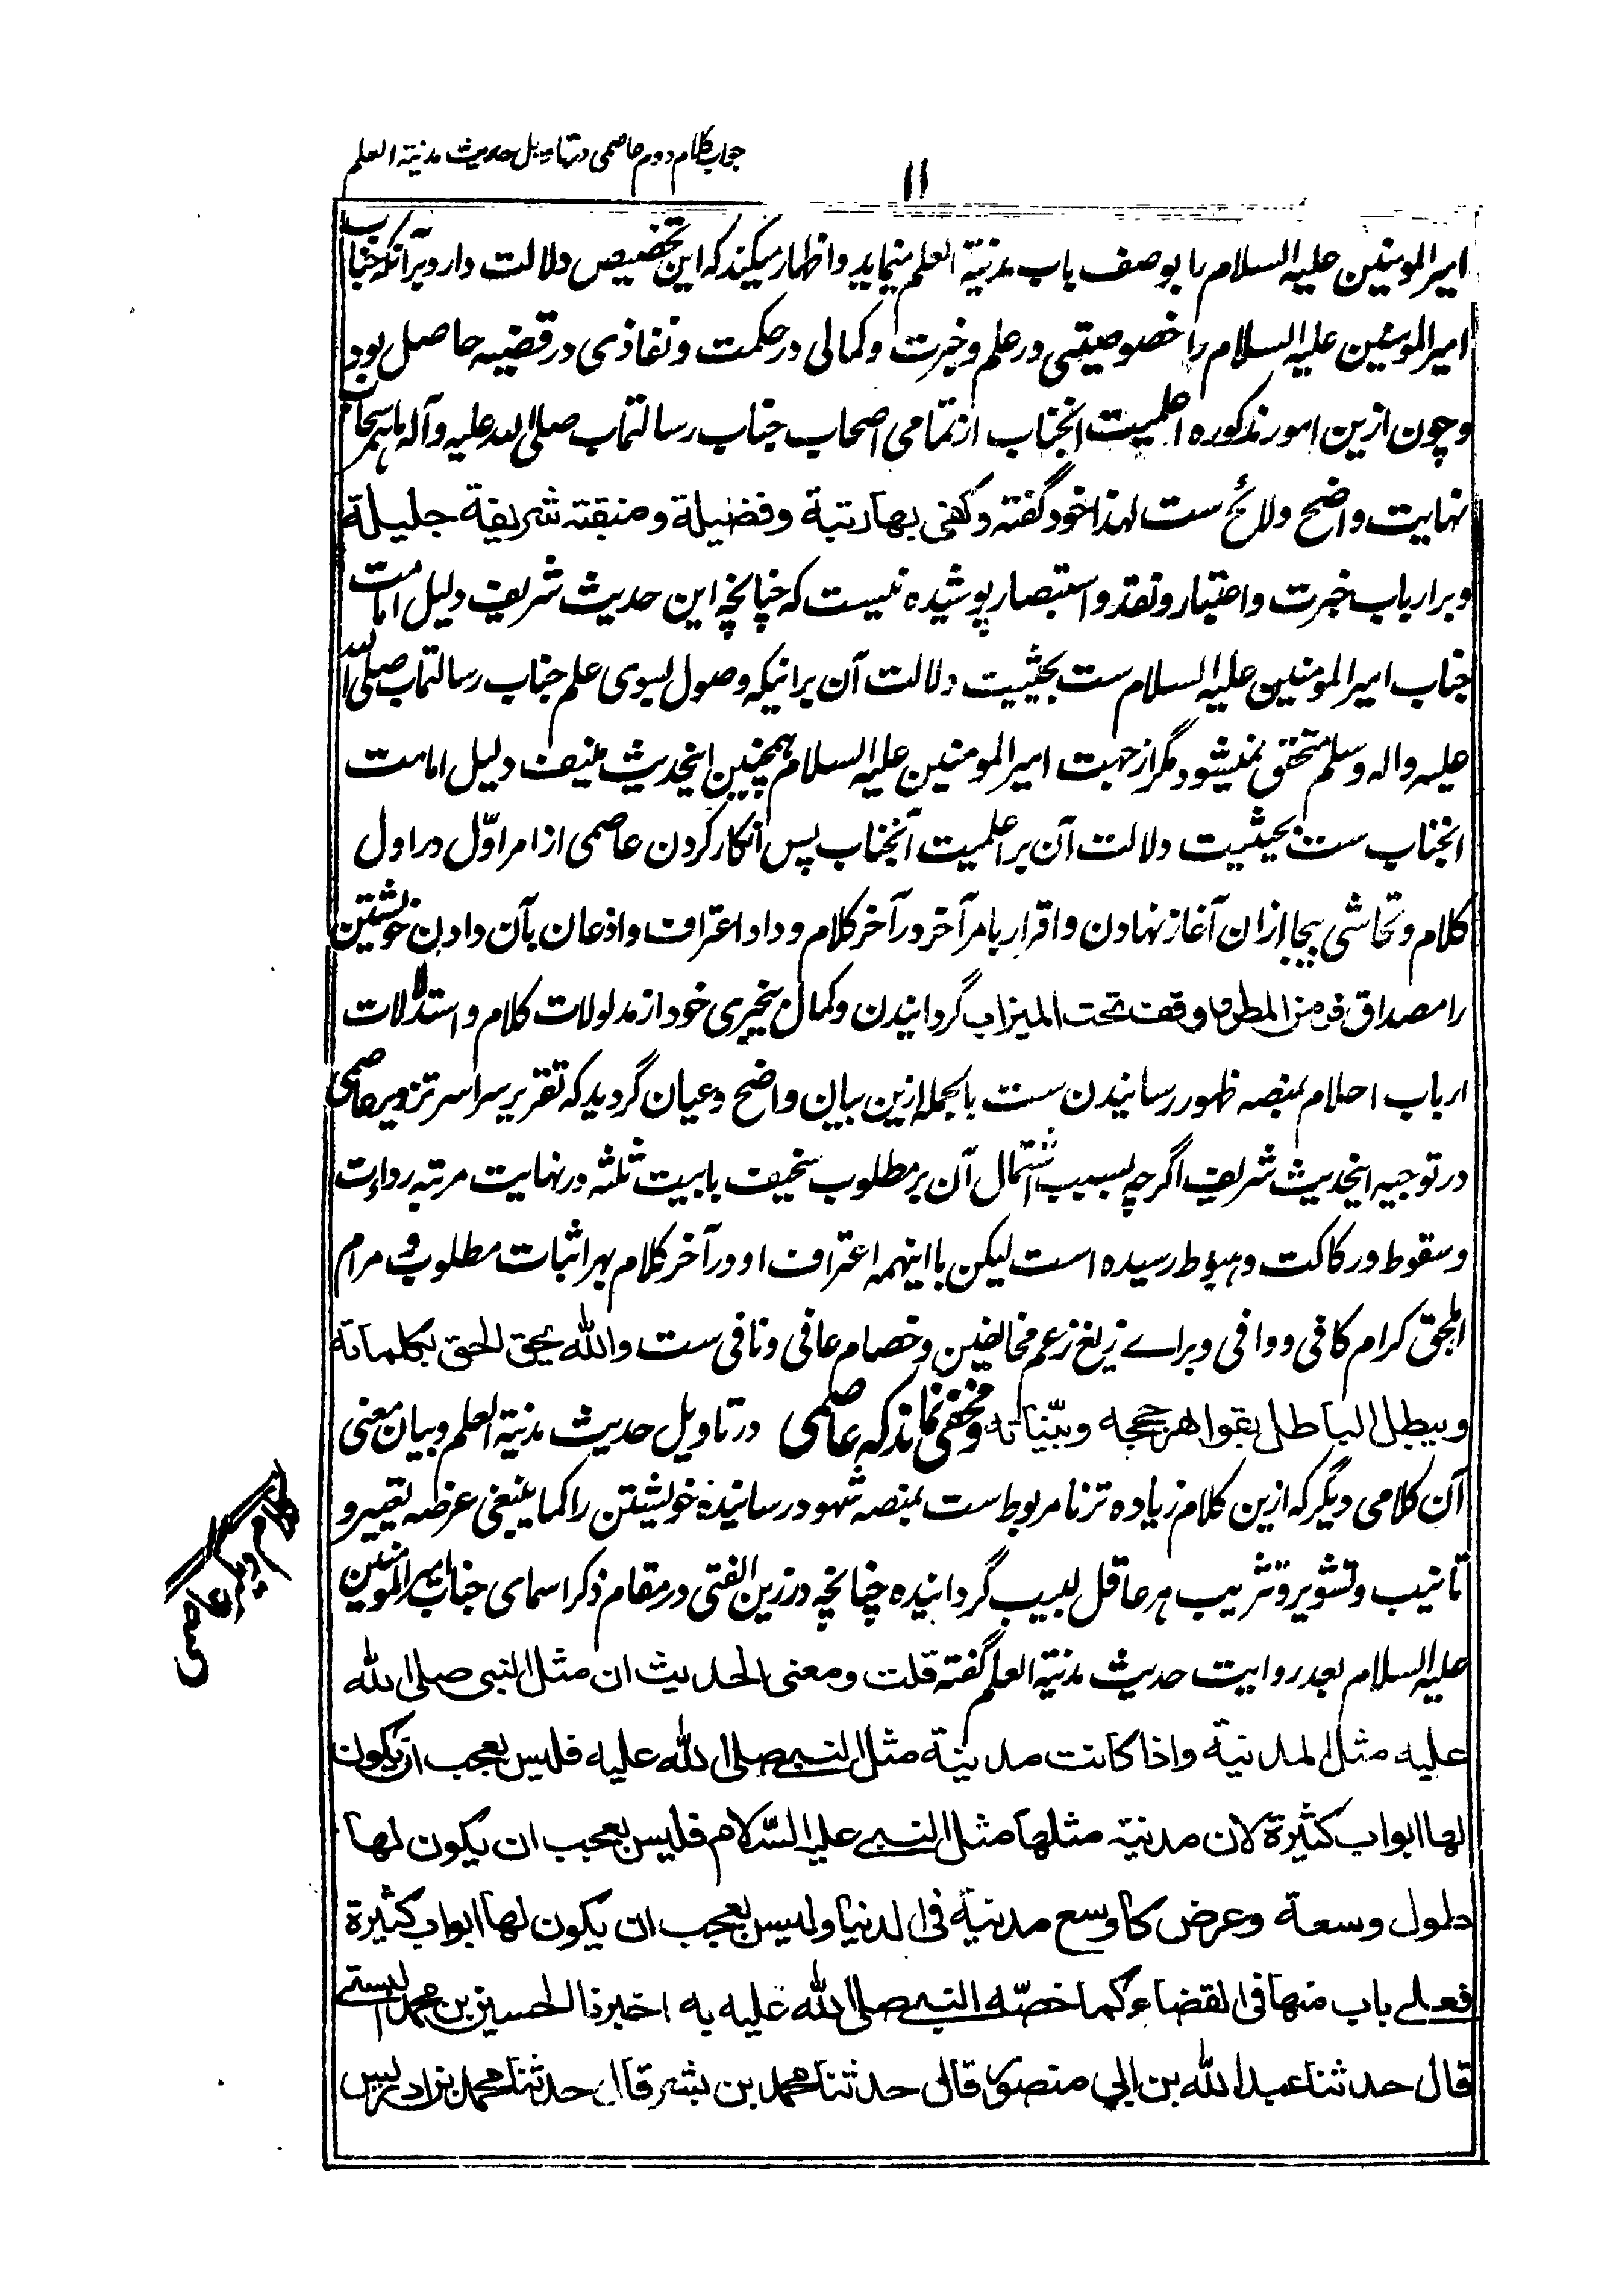 جواب کلام دوم عاصمی در تاویل حدیث مدینة العلم
۱۱
امیر المومنین علیه السلام را بوصف باب مدینة العلم مینماید و اظهار میکند که این تخصیص دلالت دارد بر آنکه جناب
امیر المومنین علیه السلام را خصوصیتی در علم و خبرت و کمالی در حکمت و نفاذی در قضیه حاصل بود
و چون ازین امور مذکوره اعلمیت انجناب از تمامی اصحاب جناب رسالتماب صلی الله علیه و آله
نهایت واضح و لائح ست لهذا خود گفته و کفی بها رتبة و فضیلة و منقبته شریفة جلیلة
و بر ارباب خبرت و اختبار و نقد و استبصار پوشیده نیست که چنانچه این حدیث شریف دلیل امامت
جناب امیر المومنین علیه السلام ست بحیثیت دلالت آن بر اینکه وصول بسوی علم جناب رسالتماب صلی الله
علیه واله وسلم متحقق نمیشود مگر از جهت امیر المومنین علیه السلام همچنین اینحدیث منیف دلیل امامت
انجناب ست بحیثیت دلالت آن بر اعلمیت آنجناب پس انکار کردن عاصمی از امر اوّل در اول
کلام و تحاشی بیجا ازان آغاز نهادن و اقرار بامر آخر در آخر کلام و داد اعتراف و اذعان بآن دادن خویشتن
را مصداق فر من المطر و وقف تحت المیزاب گردانیدن و کمال بیخبری خود از مدلولات کلام و استدلالات
ارباب احلام بمنصه ظهور رسانیدن ست بالجمله ازین بیان واضح و عیان گردید که تقریر سراسر تزویر عاصمی
در توجیه اینحدیث شریف اگرچه بسبب اشتمال آن بر مطلوب سخیف بابیت ثلثه در نهایت مرتبه رداءت
و سقوط و رکاکت و هبوط رسیده است لیکن با اینهمه اعتراف او در آخر کلام بهر اثبات مطلوب و مرام
اهلحق کرام کافی و وافی و برای زیغ زعم مخالفین و خصام عافی و نافی ست والله یحق الحق بکلماته
ویبطل الباطل بقواهر حججه وبیّناته و مخفی نماند که عاصمی در تاویل حدیث مدینة العلم و بیان معنی
آن کلامی دیگر که ازین کلام زیاده تر نا مربوط ست بمنصه شهود رسانیده خویشتن را کما ینبغی عرضه تعییر و
تانیب و تشویر و تثریب هر عاقل لبیب گردانیده چنانچه در زین الفتی در مقام ذکر اسمای جناب امیر المومنین
علیه السلام بعد روایت حدیث مدینة العلم گفته قلت ومعنی الحدیث ان مثل النبی صلی الله
علیه مثل المدینة واذا کانت مدینة مثل النبی صلی الله علیه فلیس بعجب ان یکون
لها ابواب کثیرة لان مدینة مثلها مثل النبی علیه السّلام فلیس بعجب ان یکون لها
طول وسعة وعرض کاوسع مدینة فی الدنیا ولیس بعجب ان یکون لها ابواب کثیرة
فعلی باب منها فی القضاء کما خصّه النبی صلی الله علیه به اخبرنا الحسین بن محمد البستی
قال حدثنا عبد الله بن ابی منصور قال حدثنا محمد بن بشر قال حدثنا محمد بن ادریس
کلام دیگر عاصمی